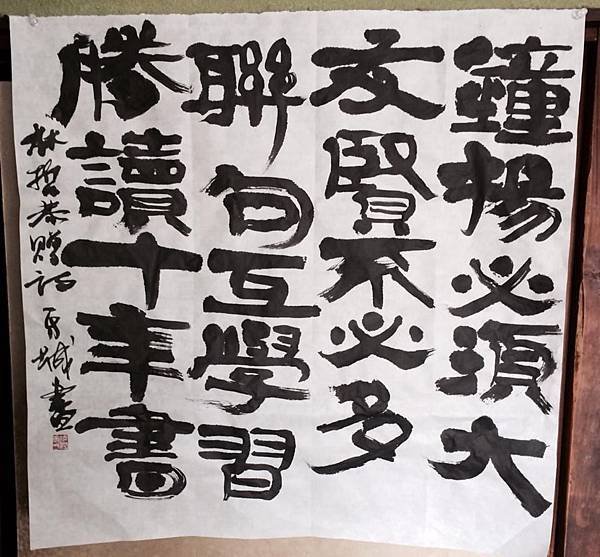 鐘揚必須大
友賢不必多
聯句互學習
勝讀十年書
林哲恭贈詩 城書